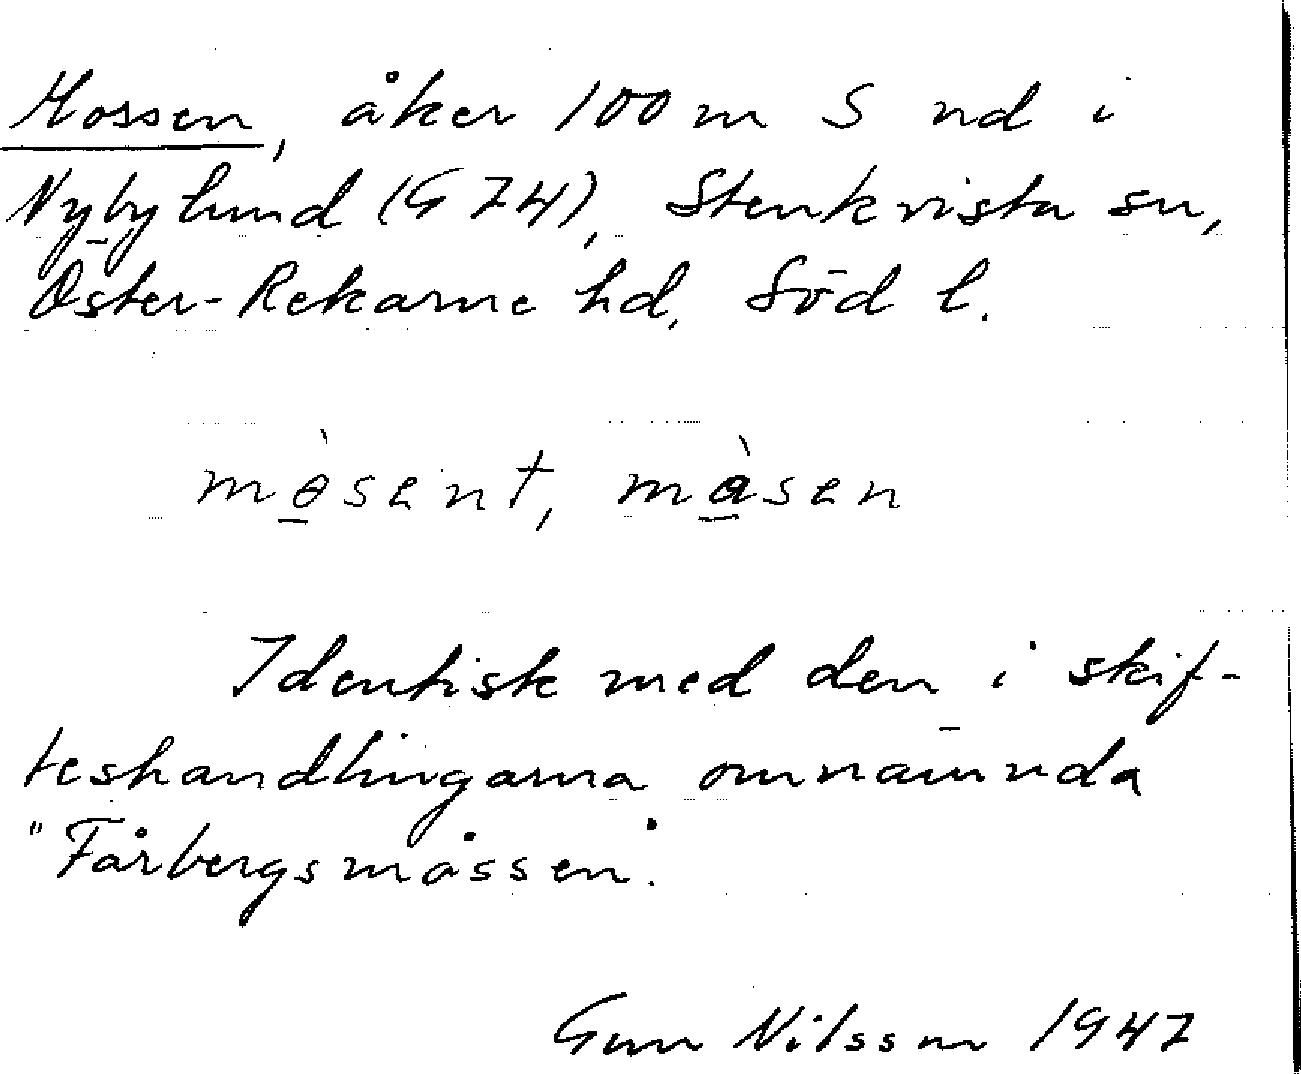 Mossen, åker 100 m S nd i
Nybylund (G 74), Stenkvista sn,
Öster-Rekarne hd, Söd l.
mò̲sent, mà̲sen
Identisk med den i skif-
teshandlingarna omnämnda
"Fårbergsmåssen".
Gun Nilsson 1947